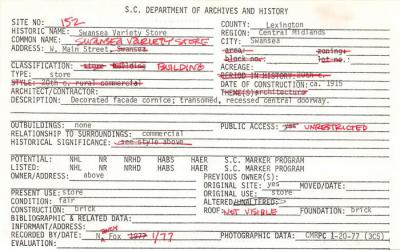 S.C. DEPARTMENT OF ARCHIVES AND HISTORY
SITE NO: 152
COUNTY: Lexington
HISTORIC NAME: Swansea Variety Store
REGION: Central Midlands
COMMON NAME: SWANSEA VARIETY STORE
CITY: Swansea
ADDRESS: W. Main Street, Swansea
area: zoning:
block no.: lot no.:
CLASSIFICATION: store building BUILDING
ACREAGE:
TYPE: store
PERIOD IN HISTORY: 20th c.
STYLE: 20th c. rural commercial
DATE OF CONSTRUCTION: ca. 1915
ARCHITECT/CONTRACTOR:
THEME(S): architecture
DESCRIPTION: Decorated facade cornice; transomed, recessed central doorway.
OUTBUILDINGS: none
PUBLIC ACCESS: yes UNRESTRICTED
RELATIONSHIP TO SURROUNDINGS: commercial
HISTORICAL SIGNIFICANCE: see style above
POTENTIAL: NHL NR NRHD HABS HAER S.C. MARKER PROGRAM
LISTED: NHL NR NRHD HABS HAER S.C. MARKER PROGRAM
OWNER/ADDRESS: above
PREVIOUS OWNER(S):
ORIGINAL SITE: yes MOVED/DATE:
PRESENT USE: store
ORIGINAL USE: store
CONDITION: fair
ALTERED/UNALTERED:
CONSTRUCTION: brick
ROOF: NOT VISIBLE FOUNDATION: brick
BIBLIOGRAPHIC & RELATED DATA:
INFORMANT/ADDRESS:
RECORDED BY/DATE: N. Fox 1977 1/77
PHOTOGRAPHIC DATA: CMRPC 1-20-77 (3CS)
EVALUATION: